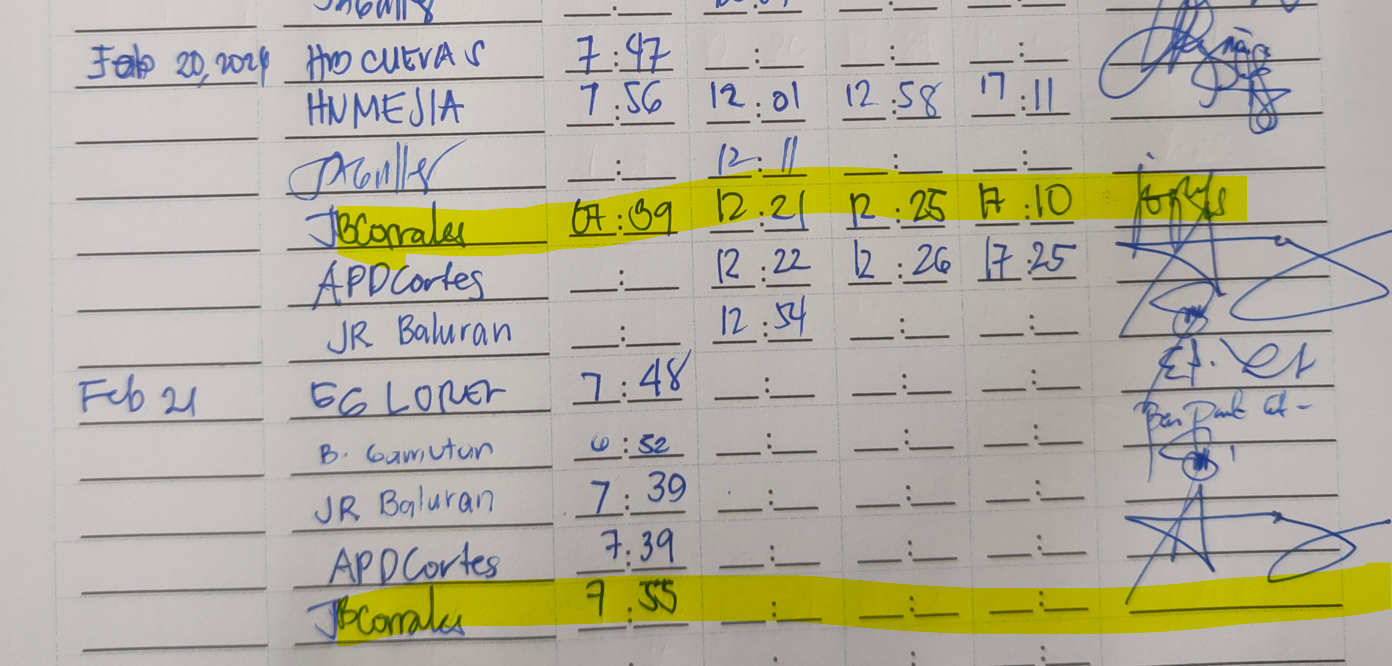 Feb 20, 2024 HD CUEVAS 7:47 __:__ __:__ __:__
HNMEJIA 7:56 12:01 12:58 17:11
__:__ 12:11 __:__ __:__
JBCorrales 07:39 12:21 12:25 17:10
APDCortes __:__ 12:22 12:26 17:25
JR Baluran __:__ 12:54 __:__ __:__
Feb 21 EG LOREN 7:48 __:__ __:__ __:__
B. Gamutan 6:52 __:__ __:__ __:__
JR Baluran 7:39 __:__ __:__ __:__
APDCortes 7:39 __:__ __:__ __:__
JBCorrales 7:55 __:__ __:__ __:__